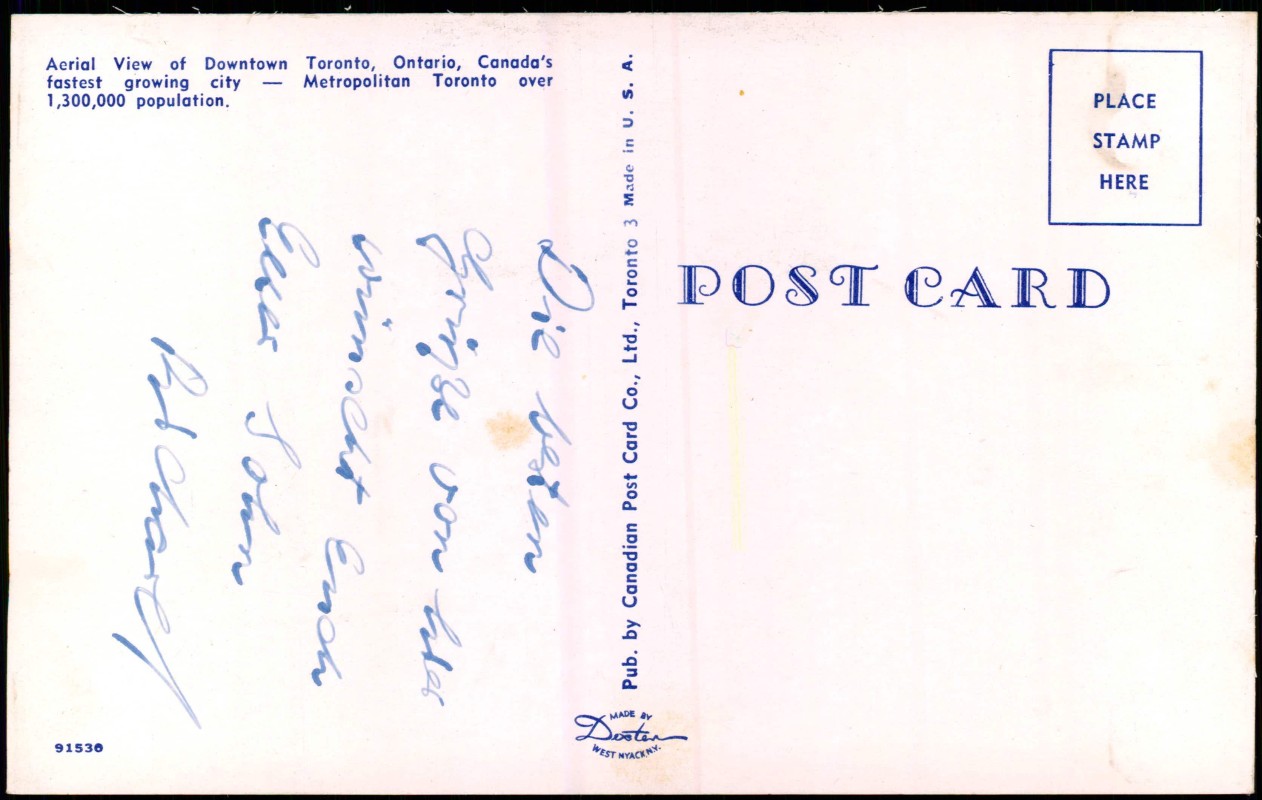 Aerial View of Downtown Toronto, Ontario, Canada's
fastest growing city — Metropolitan Toronto over
1,300,000 population.
Die besten
Grüße von hier
wünscht Euch
Euer Sohn
Pub. by Canadian Post Card Co., Ltd., Toronto 3 Made in U. S. A.
PLACE
STAMP
HERE
POST CARD
91530
MADE BY
Dexter
WEST NYACK N.Y.